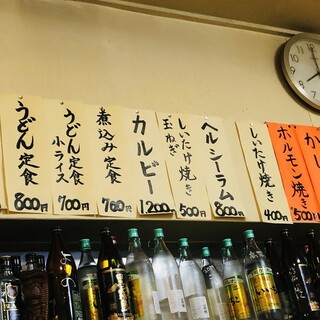 うどん定食
800
うどん定食
小ライス
700
煮込み定食
760
カルビー
1200
しいたけ焼き
玉ねぎ
500
ヘルシーラム
800
しいたけ焼き
400
ホルモン焼き
500